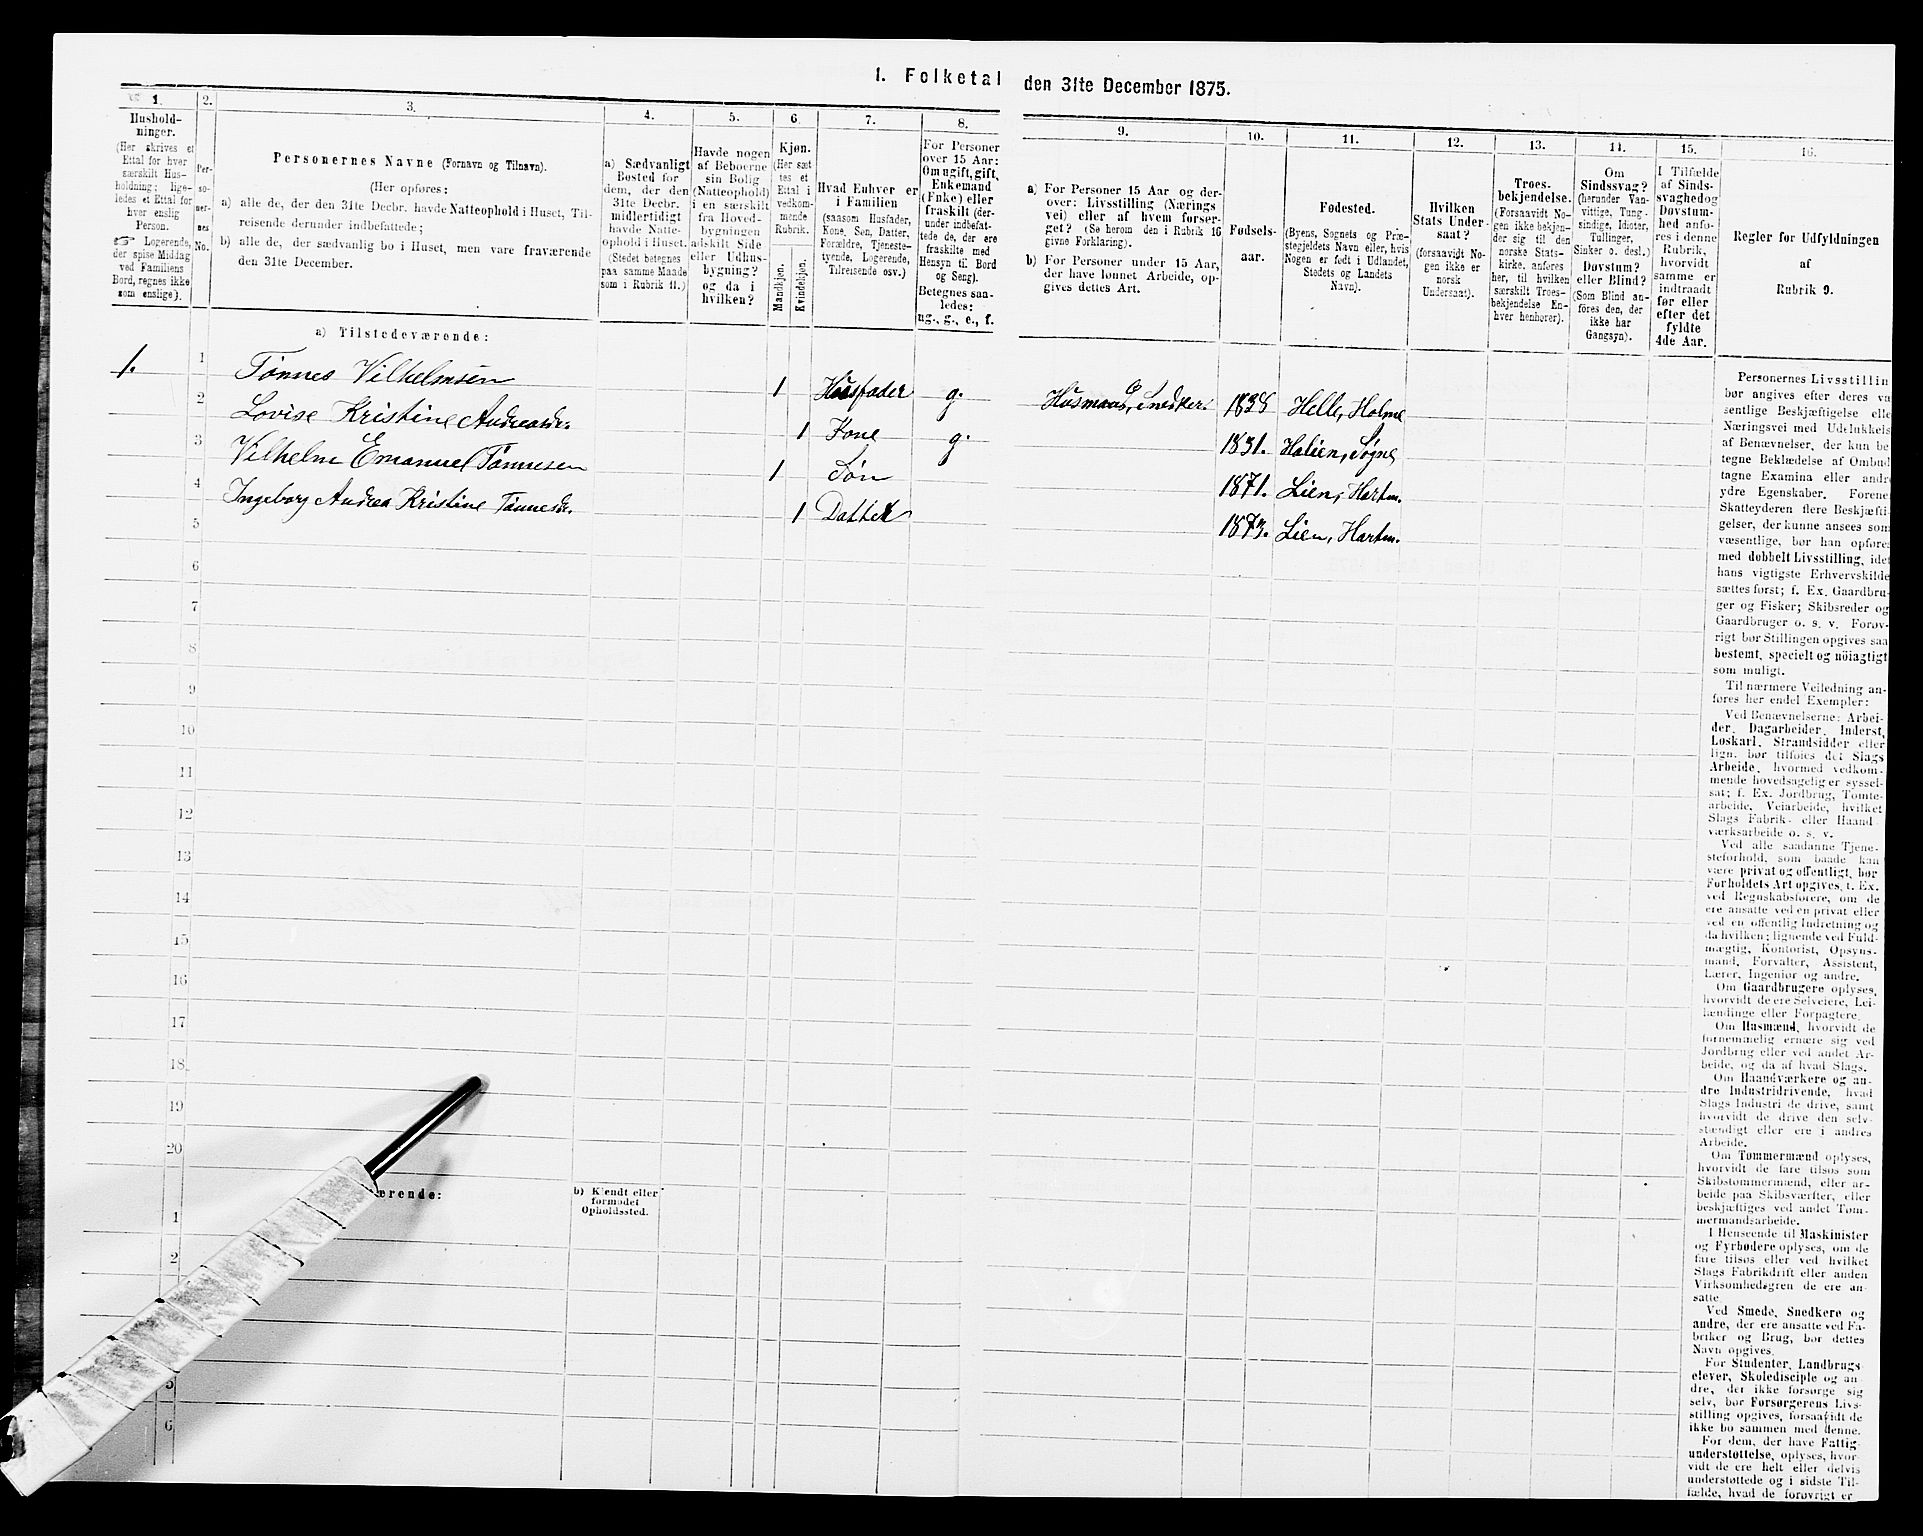 1. Folketal den 31te December 1875.
1. 2. 3. 4. 5. 6. 7. 8. 9. 10. 11. 12. 13. 14. 15. 16.
Hushold-
ninger.
(Her skrives et
Ettal for hver
særskilt Hus-
holdning; lige-
ledes et Ettal for
hver enslig
Person.
Logerende,
der spise Middag
ved Familiens
Bord, regnes ikke
som enslige).
Per-
so-
ner-
nes
No.
Personernes Navne (Fornavn og Tilnavn).
(Her opføres:
a) alle de, der den 31te Decbr. havde Natteophold i Huset, Til-
reisende derunder indbefattede;
b) alle de, der sædvanlig bo i Huset, men vare fraværende
den 31te December.
a) Sædvanligt
Bosted for
dem, der den
31te Decbr.
midlertidigt
havde Natte-
ophold i Huset.
(Stedet betegnes
paa samme Maade
som i Rubrik 11.)
Havde nogen
af Beboerne
sin Bolig
(Natteophold)
i en særskilt
fra Hoved-
bygningen
adskilt Side
eller Udhus-
bygning?
og da i
hvilken?
Kjøn.
(Her sæt
tes et
Ettal i
vedkom-
mende
Rubrik.
Mandkjøn.
Kvindekjøn.
Hvad Enhver er
i Familien
(saasom Husfader,
Kone, Søn, Datter,
Forældre, Tjeneste-
tyende, Logerende,
Tilreisende osv.)
For Personer
over 15 Aar:
Om ugift, gift,
Enkemand
(Enke) eller
fraskilt (der-
under indbefat-
tede de, der ere
fraskilte med
Hensyn til Bord
og Seng).
Betegnes saa-
ledes:
ug., g., e., f.
a) For Personer 15 Aar og der-
over: Livsstilling (Nærings
vei) eller af hvem forsør-
get? (Se herom den i Rubrik 16
givne Forklaring).
b) For Personer under 15 Aar,
der have lønnet Arbeide, op-
gives dettes Art.
Fødsels-
aar.
Fødested.
(Byens, Sognets og Præ-
stegjeldets Navn eller, hvis
Nogen er født i Udlandet,
Stedets og Landets
Navn).
Hvilken
Stats Under-
saat?
(forsaavidt No-
gen ikke er
norsk
Undersaat).
Troes-
bekjendelse.
(Forsaavidt No-
gen ikke bekjen-
der sig til den
norske Stats-
kirke, anføres
her, til hvilken
særskilt Troes-
bekjendelse En-
hver henhører).
Om
Sindssvag?
(herunder Van-
vittige, Tung-
sindige, Idioter,
Tullinger,
Sinker o. desl.)
Døvstum?
eller Blind?
(Som Blind an-
føres den, der
ikke har
Gangsyn).
I Tilfælde
af Sinds-
svaghed og
Døvstum-
hed anfø-
res i denne
Rubrik,
hvorvidt
samme er
indtraadt
før eller
efter det
fyldte
4de Aar.
Regler for Udfyldningen
af
Rubrik 9.
a) Tilstedeværende:
1. 1 Tønnes Vilhelmsen 1 Husfader g. Husmand, Snedker. 1838 Helle, Holme
2 Lovise Kristine Andreasdr. 1 Kone g. 1831. Høllen, Søgne
3 Vilhelm Emanuel Tønnesen 1 Søn 1871. Lien, Hartm.
4 Ingeborg Andrea Kristine Tønnesdr. 1 Datter 1873. Lien, Hartm.
5
6
7
8
9
10
11
12
13
14
15
16
17
18
19
20
ærende:
b) Kjendt eller
formodet
Opholdssted.
1
2
5
6
Personernes Livsstillin
bør angives efter deres væ
sentlige Beskjæftigelse elle
Næringsvei med Udelukkels
af Benævnelser, der kun be
tegne Beklædelse af Ombud
tagne Examina eller andre
ydre Egenskaber. Forene
Skatteyderen flere Beskjæfti-
gelser, der kunne ansees som
væsentlige, bør han opføres
med dobbelt Livsstilling, idet
hans vigtigste Erhvervskilde
sættes først; f. Ex. Gaardbru-
ger og Fisker; Skibsreder og
Gaardbruger o. s. v. Forøv-
rigt bør Stillingen opgives saa
bestemt, specielt og nöiagtigt
som muligt.
Til nærmere Veiledning an-
føres her endel Exempler:
Ved Benævnelserne: Arbei-
der, Dagarbeider, Inderst,
Løskarl, Strandsidder eller
lign. bør tilføies det Slags
Arbeide, hvormed vedkom-
mende hovedsagelig er syssel-
sat; f. Ex. Jordbrug, Tomte-
arbeide, Veiarbeide, hvilket
Slags Fabrik- eller Haand-
værksarbeide o. s. v.
Ved alle saadanne Tjene-
steforhold, som baade kan
være privat og offentligt, bør
Forholdets Art opgives, t. Ex.
ved Regnskabsførere, om de
ere ansatte ved en privat eller
ved en offentlig Indretning og
da hvilken; lignende ved Fuld-
mægtig, Kontorist, Opsyns-
mand, Forvalter, Assistent,
Lærer, Ingeniør og andre.
Om Gaardbrugere oplyses,
hvorvidt de ere Selveiere, Lei-
lændinge eller Forpagtere.
Om Husmænd, hvorvidt de
fornemmelig ernære sig ved
Jordbrug eller ved andet Ar-
beide, og da af hvad Slags.
Om Haandværkere og an-
dre Industridrivende, hvad
Slags Industri de drive, samt
hvorvidt de drive den selv-
stændigt eller ere i andres
Arbeide.
Om Tømmermænd oplyses,
hvorvidt de fare tilsøs som
Skibstømmermænd, eller ar-
beide paa Skibsværfter, eller
beskjæftiges ved andet Tøm-
mermandsarbeide.
I Henseende til Maskinister
og Fyrbødere oplyses, om de
fare tilsøs eller ved hvilket
Slags Fabrikdrift eller anden
Virksomhedsgren de ere an-
satte.
Ved Smede, Snedkere og
andre, der ere ansatte ved Fa-
briker og Brug, bør dettes
Navn opgives.
For Studenter, Landbrugs-
elever, Skoledisciple og an-
dre, der ikke forsørge sig
selv, bør Forsørgerens Livs-
stilling opgives, forsaavidt de
ikke bo sammen med denne.
For dem, der have Fattig-
understøttelse, oplyses, hvor-
vidt de ere helt eller delvis
understøttede og i sidste Til-
fælde, hvad de forøvrigt er